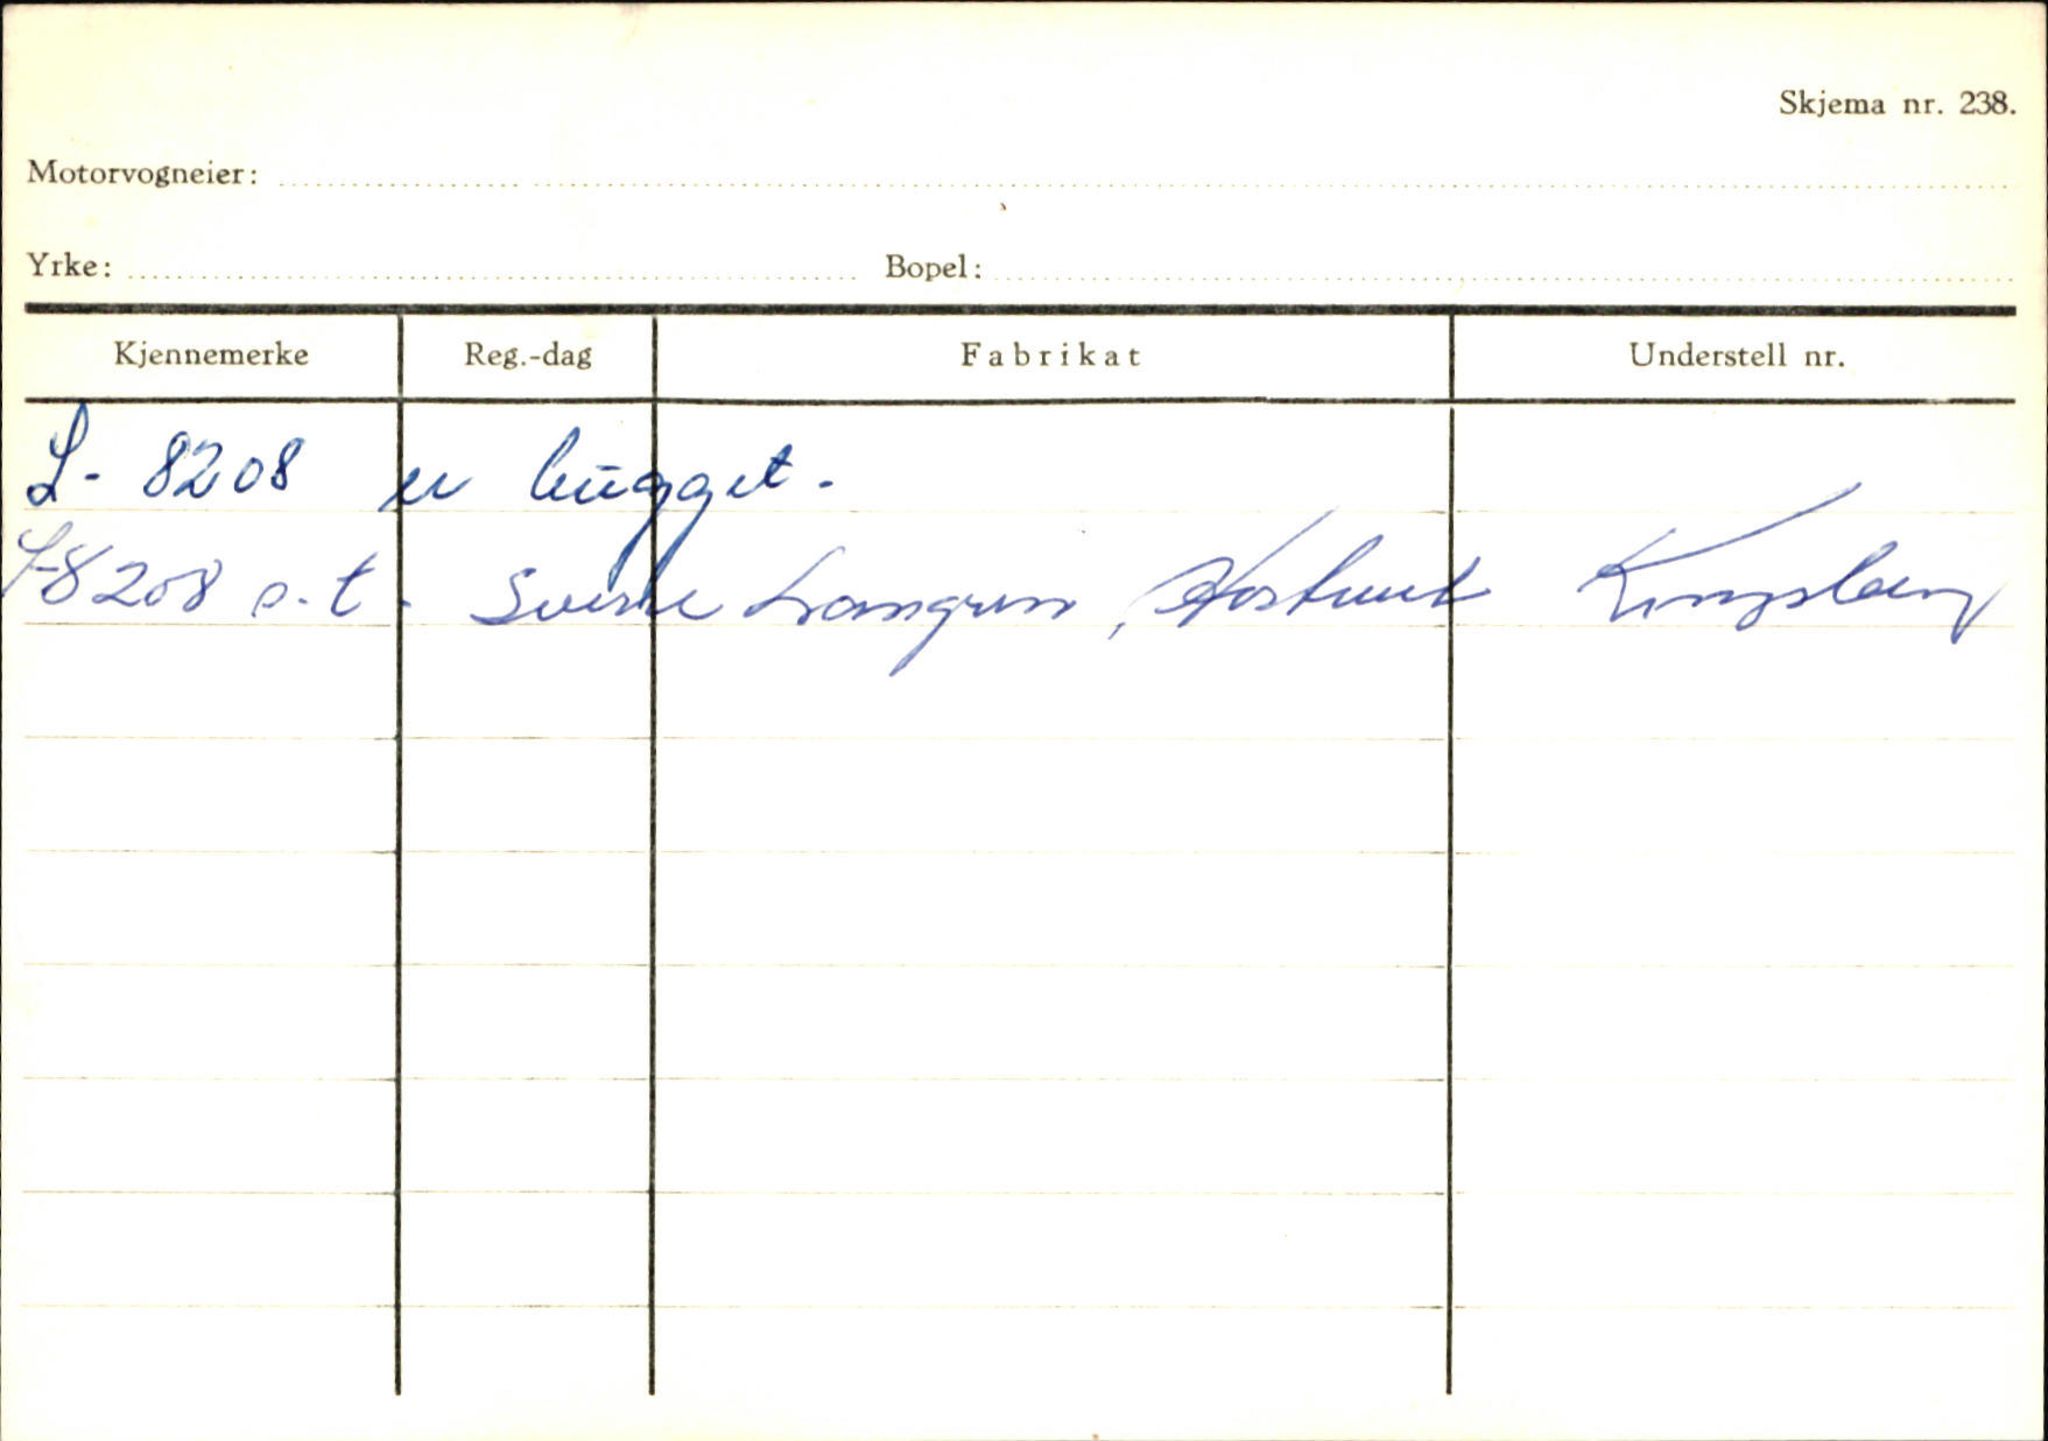 Skjema nr. 238.
Motorvogneier:
Yrke: Bopel:
Kjennemerke Reg.-dag Fabrikat Understell nr.
L- 8208 er hugget.
L-8208 o.t. Sverre Kongsberg